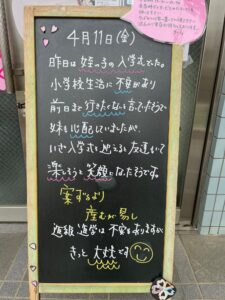 4月11日(金)
昨日は姪っ子の入学式でした。
小学校生活に不安があり
前日まで行きたくないと言ってたそうで
妹も心配していましたが、
いざ入学式を迎えると友達もいて
楽しそうと笑顔になったそうです。
案ずるより
産むが易し
進級、進学は不安もありますが
きっと大丈夫です